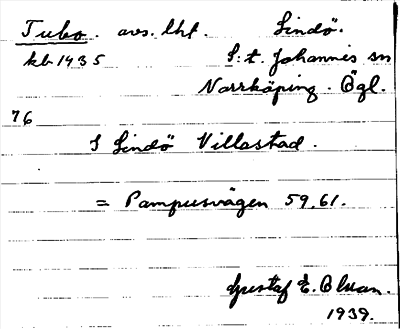 Tubo. avs. lht. Lindö.
kb 1435 S:t. Johannis sn
Norrköping. Ögl.
76
I Lindö Villastad.
= Pampusvägen 59, 61.
Gustaf E. Olman.
1939.